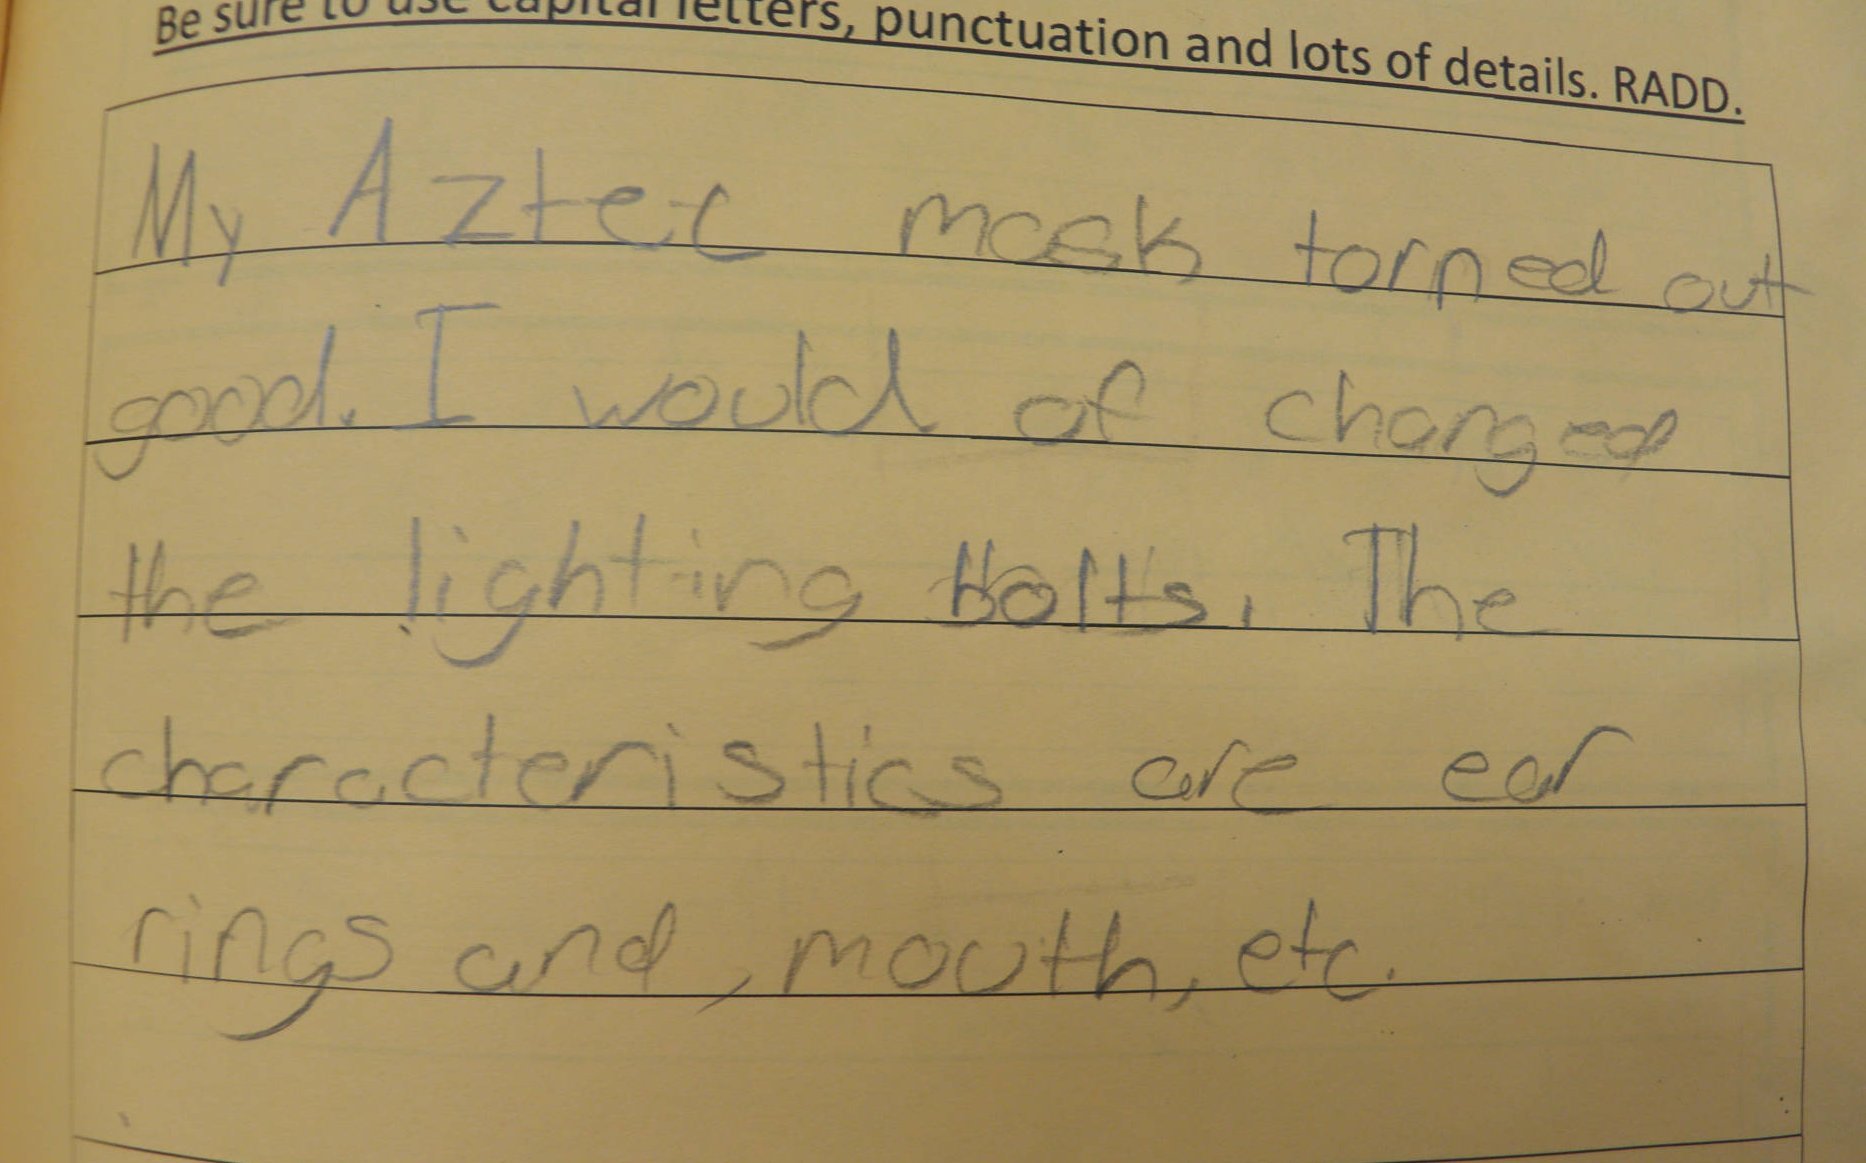 Be sure to use capital letters, punctuation and lots of details. RADD.
My Aztec mask torned out
good. I would of charged
the lighting bolts. The
characteristics are ear
rings and, mouth, etc.